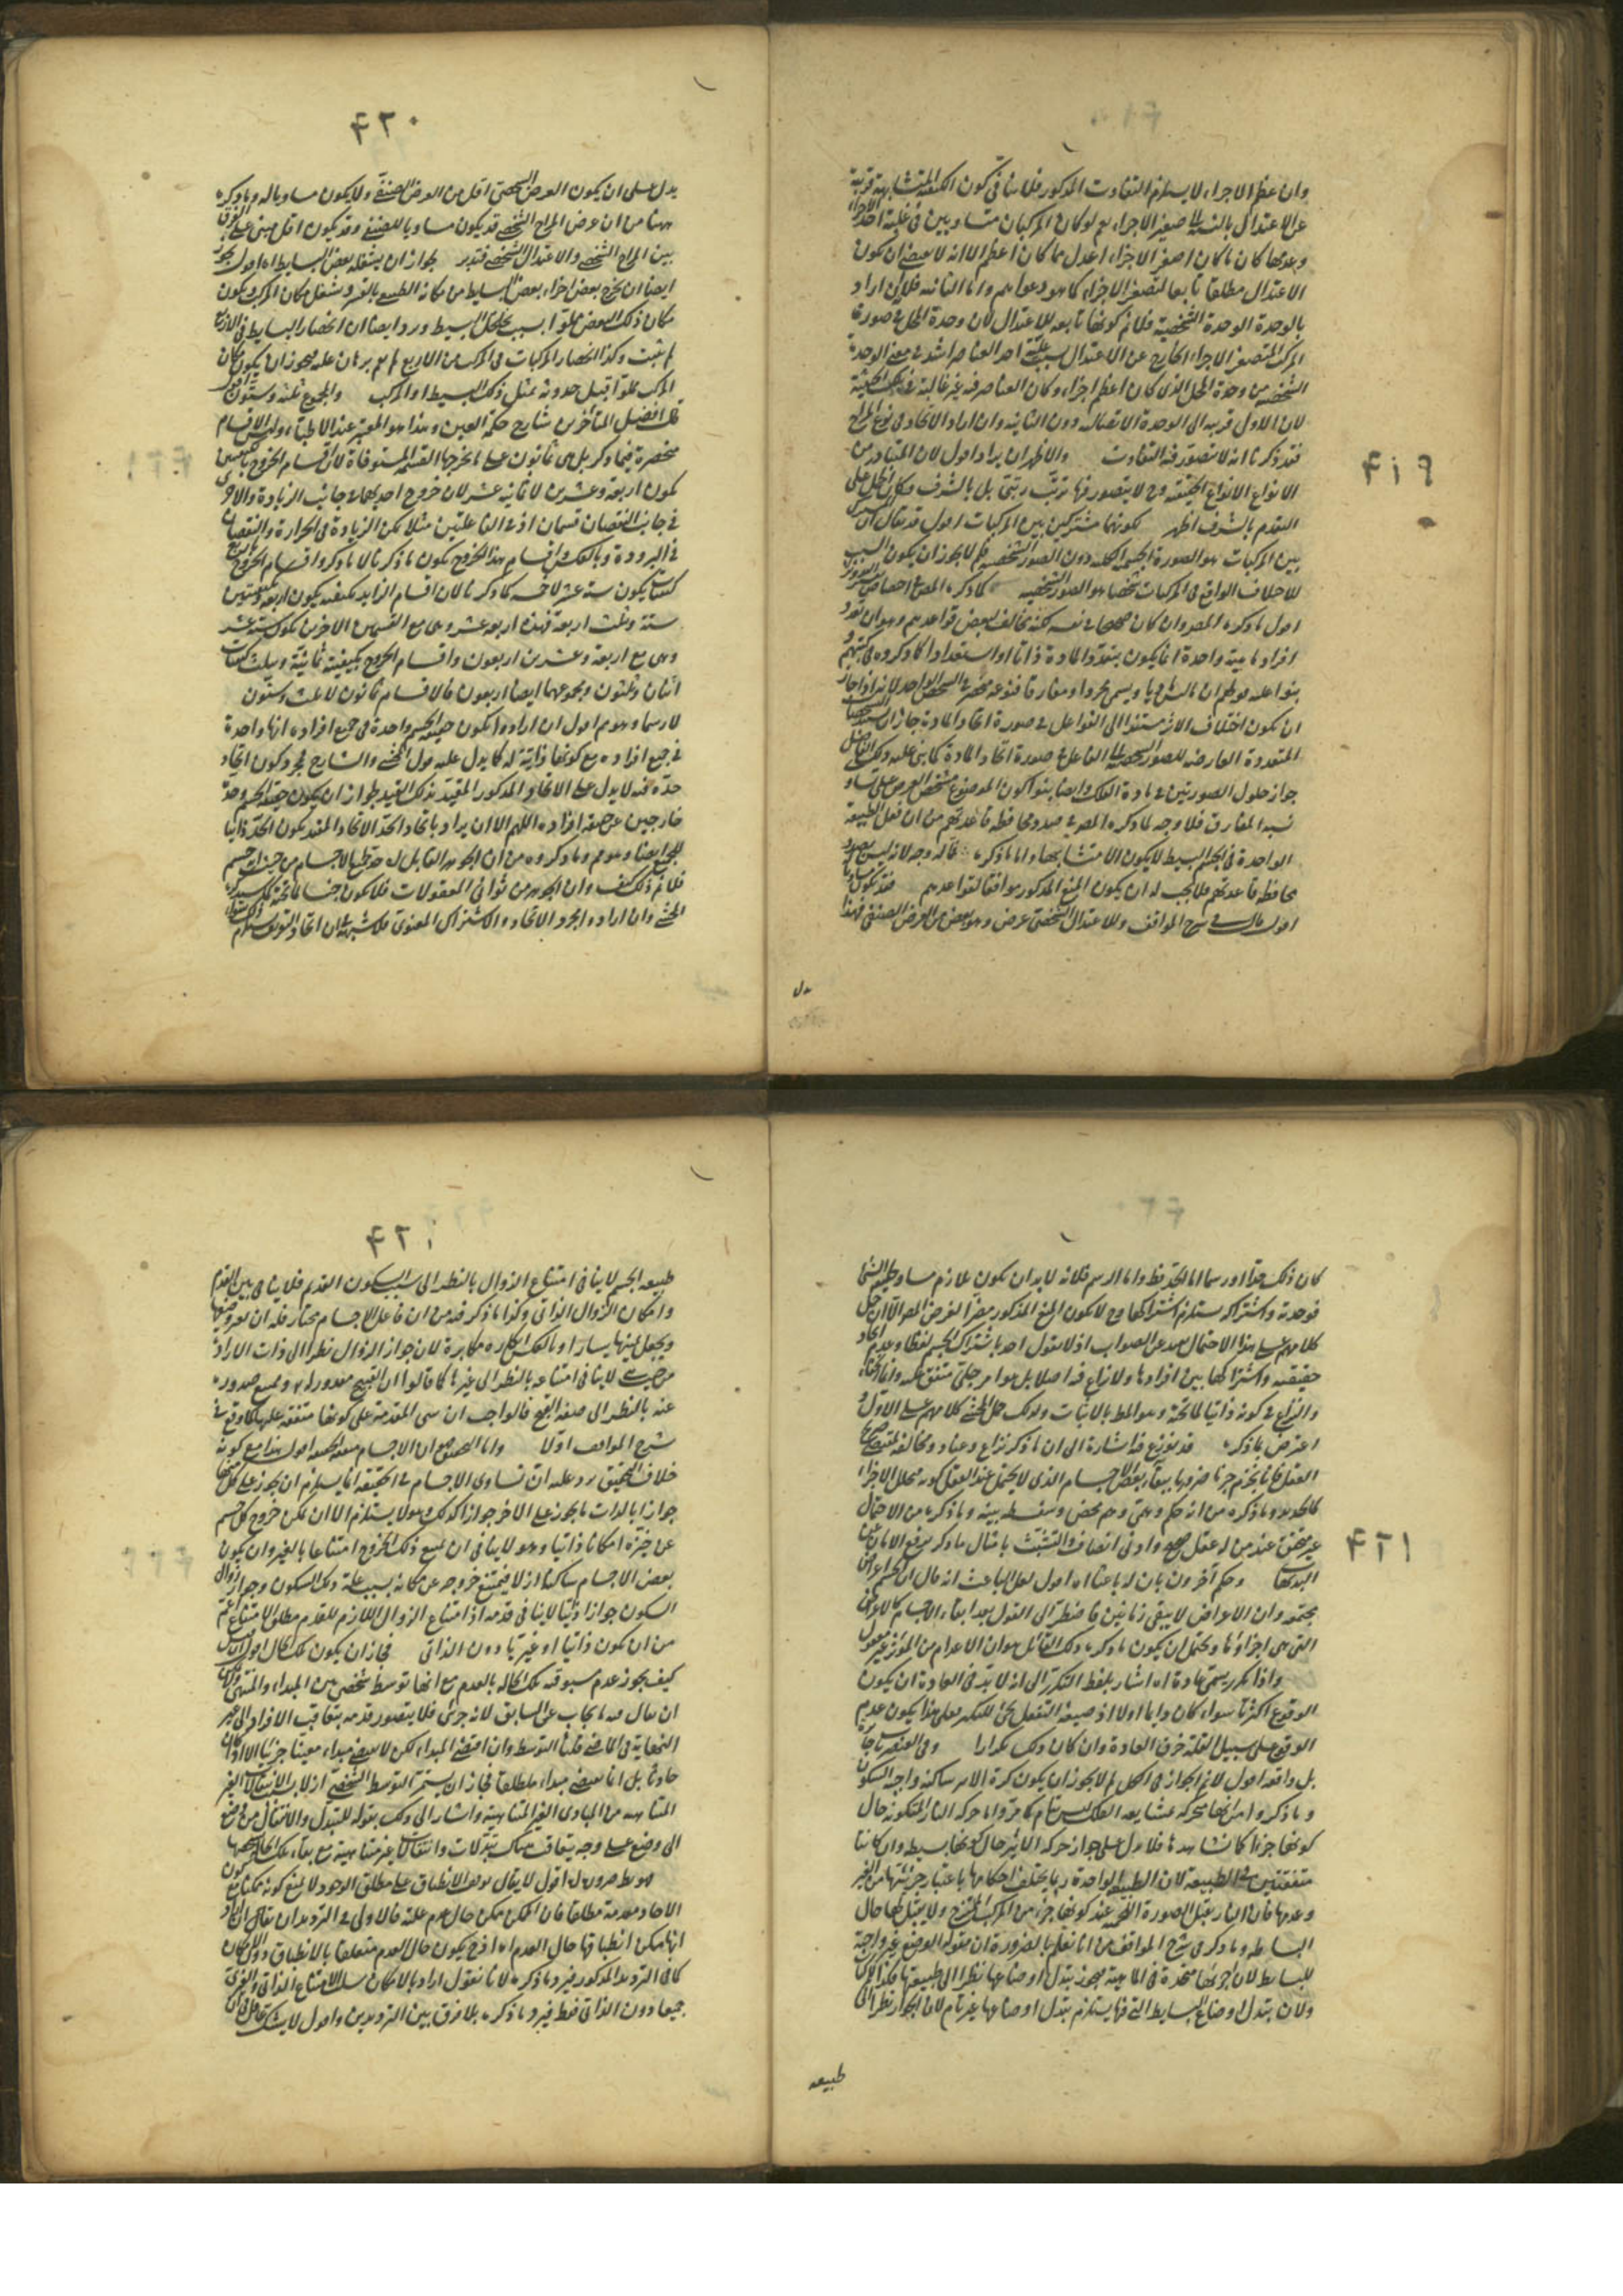 ٤١٩
وان عظم الاجزاء لا يستلزم التفاوت المذكور فلا ينافي كون الكيفية المتشابهة قريبة
عن الاعتدال بالنسبة الى صغير الاجزاء نعم لو كان المركبان متساويين في غلبة احد الاجزاء
وعدمها كان ما كان اصغر الاجزاء اعدل مما كان اعظم الا انه لا يقتضي ان يكون
الاعتدال مطلقا تابعا لتصغر الاجزاء كما هو دعواهم واما الثانية فلان اراد
بالوحدة الوحدة الشخصية فلانم كونها تابعة للاعتدال لان وحدة المحل في صورة
المركب المتصغر الاجزاء الخارج عن الاعتدال بسبب غلبة احد العناصر اشد في معنى الوحدة
الشخصية من وحدة المحل الذي كان اعظم اجزاء وكان العناصر فيه غير غالبة
لان الاول قريبة الى الوحدة الاتصالية دون الثانية وان اراد الاتحاد في نوع المزاج
فقد ذكرنا انه لا يتصور فيه التفاوت والاظهر ان يراد اقول لان المتبادر من
الانواع الانواع الحقيقية وح لا يتصور فيها ترتب رتبي بل بالشرف فكان الحمل على
التقدم بالشرف اظهر لكونها مشتركين بين المركبات اقول قد يقال ان
بين المركبات هو الصورة الجسمية المحله دون الصور الشخصية فلم لا يجوز ان يكون السبب
للاختلاف الواقع في المركبات تشخصا هو الصور الشخصية كما ذكره المص
اقول ما ذكره المص وان كان صحيحا في نفسه لكنه مخالف لبعض قواعدهم وهو ان تعدد
افراد ماهية واحدة انما يكون بتعدد المادة ذاتا او استعدادا كما ذكروه في كتبهم
بنوا عليه قولهم ان ما ليس ماديا ويسمى مجردا ومفارقا فنوعه منحصر في الشخص الواحد
ان يكون اختلاف الاثر مستندا الى الفواعل في صورة اتحاد المادة جاز ان يستند
المتعددة العارضة للصور الى الفاعل في صورة اتحاد المادة كما بنى عليه ذلك الفاضل
جواز حلول الصورتين في مادة الفلك وايضا بنوا كون الموضوع مشخص العرض على تساو
نسبة المفارق فلا وجه لما ذكره المص في صدد محافظة قاعدتهم من ان فعل الطبيعة
الواحدة في الجسم البسيط لا يكون الا متشابها واما ما ذكره
محافظة قاعدتهم فلا يجب له ان يكون المنع المذكور موافقا لقواعدهم فقد يكون مساويا
اقول قال في شرح المواقف وللاعتدال الشخصي عرض وهو بعض من العرض الصنفي فهذا
يدل
٤٢٠
يدل على ان يكون العرض الشخصي اقل من العرض الصنفي ولا يكون مساويا له وما ذكره
ههنا من ان عرض المزاج الشخصي قد يكون مساويا للصنفي وقد يكون اقل مبني على الفرق
بين المزاج الشخصي والاعتدال الشخصي فتدبر لجواز ان يشغله بعض البسايط اه اقول يجوز
ايضا ان يخرج بعض اجزاء بعض البسايط من مكانه الطبيعي بالقسر ويشغل مكان المركب ويكون
مكان ذلك البعض مملوا بسبب تخلخل البسيط ورد ايضا ان انحصار البسايط في الاربع
لم يثبت وكذا انحصار المركبات في المركب من الاربع لم يقم برهان عليه فيجوز ان يكون مكان
المركب مملوا قبل حدوثه بمثل ذلك البسيط او المركب والمجموع ثلثة وستون اقول
قال افضل المتأخرين شارح حكمة العين وهذا هو المعتبر عند الاطباء وليس الاقسام
منحصرة فيما ذكر بل هي ثمانون على ما يخرجها القسمة المستوفاة لان اقسام الخروج بكيفيتين
يكون اربعة وعشرين لا ثمانية عشر لان خروج احديهما في جانب الزيادة والاخرى
في جانب النقصان قسمان اذ في الفاعلتين مثلا يمكن الزيادة في الحرارة والنقصان
في البرودة وبالعكس واقسام هذا الخروج يكون ما ذكرنا لا ما ذكروا واقسام الخروج باربع
كيفيات يكون ستة عشر لا خمسة كما ذكرنا لان اقسام الزايد بكيفية يكون اربعة وبكيفيتين
ستة وبثلث اربعة فهذه اربعة عشر وهي مع القسمين الاخرين يكون ستة عشر
وهي مع اربعة وعشرين اربعون واقسام الخروج بكيفية ثمانية وبثلث كيفيات
اثنان وثلثون ومجموعهما ايضا اربعون فالاقسام ثمانون لا ثلث وستون
لا رسما وهو هم اقول ان ارادوا بكون حقيقة الجسم واحدة في جميع افراده انها واحدة
في جميع افراده مع كونها ذاتية له كما يدل عليه قول المحشي والشارح مجرد كون اتحاد
حده فيه لا يدل على الاتحاد المذكور المقيد بذلك القيد لجواز ان يكون حقيقة الجسم وحده
خارجين عن حقيقة افراده اللهم الا ان يراد باتحاد الحد الاتحاد المقيد بكون الحد ذاتيا
للجميع ايضا وهو هم وما ذكروه من ان الجوهر القابل له حد قطع الاجسام من حيث انه جسم
فلانم ذلك كيف وان الجوهر من ثواني المعقولات فلا يكون جنسا لما تحته كما سيذكره
المحشي وان ارادوا مجرد الاتحاد والاشتراك المعنوي فلا شبهة في ان اتحاد التعريف يستلزم
كان ذلك حدا او رسما اما الحد فظ واما الرسم فلانه لا بد ان يكون بلازم مساو لطبيعة الشيء
فوحدته واشتراكه يستلزم اشتراكها وح لا يكون المنع المذكور مضرا لغرض المص الا ان حمل
كلامهم على هذا الاحتمال بعيد عن الصواب اذ لا يقول احد باشتراك الجسم لفظا وعدم اتحاد
حقيقته واشتراكها بين افرادها ولا نزاع فيه اصلا بل هو امر جلي متفق عليه وانما الخفاء
والنزاع في كونه ذاتيا لما تحته وهو المط بالاثبات ولذلك حمل المحشي كلامهم على الاول و
اعترض بما ذكره قد يوزع فيه اشارة الى ان ما ذكر نزاع وعناد ومخالفة لمقتضى صريح
العقل فانا نجزم جزما ضروريا ببقاء بعض الاجسام الذي لا يحتمل عند العقل كونه متحلل الاجزاء
كالحديد وما ذكره من انه حكم وهمي وهم محض وسفسطة بينة وما ذكره من الاحتمال
غير متحقق عند من له عقل صحيح وادنى انصاف والتشبث بامثال ما ذكر يرفع الامان عن
البديهيات وحكم آخرون بان له باعثا اه اقول لعل الباعث انه قال ان الجسم اعراض
مجتمعة وان الاعراض لا يبقى زمانين فاضطر الى القول بعدم بقاء الاجسام كالاعراض
التي هي اجزاؤها ويحتمل ان يكون ما ذكره ذلك القائل هو ان الاعدام من المؤثر غير معقول
واذا تكرر يسمى عادة اه اشار بلفظ التكرر الى انه لا بد في العادة ان يكون
الوقوع اكثريا سواء كان دايما او لا اذ صيغة التفعل يجيء للتكرير فعلى هذا يكون عدم
الوقوع على سبيل القلة خرق العادة وان كان ذلك مكررا وفي العنصر يات جائزة
بل واقعة اقول لانم الجواز في الكل لم لا يجوز ان يكون كرة الاثير ساكنة واجبة السكون
وما ذكروا من انها متحركة بمشايعة الفلك ليس بتام كما مر واما حركة النار المتكونة حال
كونها جزءا كما نشاهدها فلا يدل على جواز حركة الاثير حال كونها بسيطة وان كانتا
متفقتين في الطبيعة لان الطبيعة الواحدة ربما يختلف احكامها باعتبار جزئيتها من الغير
وعدمها فان النار يقبل الصورة اللحمية عند كونها جزء من المركب الممتزج ولا يقبل لها حال
البساطة وما ذكر في شرح المواقف من انا نعلم بالضرورة ان مقولة الوضع غير واجبة
للبسايط لان اجزائها متحدة في الماهية فيجوز تبدل اوضاعها نظرا الى طبيعتها فكذا المركبات
ولان تبدل اوضاع البسايط التي فيها يستلزم تبدل اوضاعها غير تام لان الجواز نظرا الى
طبيعة
٤٢١
طبيعة الجسم لا ينافي امتناع الزوال بالنظر الى سبب السكون القديم فلا ينافي بين القدم
وامكان الزوال الذاتي وكذا ما ذكر فيه من ان فاعل الاجسام مختار فله ان
ويجعل يمينها يسارا وبالعكس وانكاره مكابرة لان جواز الزوال نظرا الى ذات الارادة
من حيث هي لا ينافي امتناعه بالنظر الى غيرها كما قالوا ان القبيح مقدور له ويمتنع صدوره
عنه بالنظر الى صفة القبح فالواجب ان يبنى المقدمة على كونها متفقة عليها كما وقع في
شرح المواقف اولا واما الصلاح ان الاجسام متفقة الحقيقة اقول هذا مع كونه
خلاف التحقيق يرد عليه ان تساوي الاجسام في الحقيقة انما يستلزم ان يجوز على كل منها
جوازا بالذات ما يجوز على الآخر جوازا كذلك وهو لا يستلزم الا ان يمكن خروج كل جسم
عن حيزه امكانا ذاتيا وهو لا ينافي ان يمتنع ذلك الخروج امتناعا بالغير وان يكون
بعض الاجسام ساكنا ازلا فيمتنع خروجه عن مكانه بسبب علة ذلك السكون وجواز زوال
السكون جوازا ذاتيا لا ينافي قدمه اذ امتناع الزوال اللازم للقدم مطلق الامتناع اعم
من ان يكون ذاتيا او غيريا دون الذاتي فجاز ان يكون تلك الحال
كيف يجوز عدم مسبوقية تلك الحالة بالعدم مع انها توسط شخصي بين المبداء والمنتهى
ان يقال فيه ما يجاب عن السابق لانه جزئي فلا يتصور قدمه بتعاقب الافراد الى غير
النهاية في الماضي قلنا التوسط وان اقتضى المبداء لكن لا يقتضي مبداء معينا جزئيا الا اذا كان
حادثا بل انما يقتضي مبداء مطلقا فجاز ان يستمر التوسط الشخصي ازلا بسبب الانتقالات الغير
المتناهية من المبادي الغير المتناهية واشار الى ذلك بقوله للتبدل والانتقال من وضع
الى وضع على وجه يتعاقب هناك تبدلات وانتقالات غير متناهية مع بقاء تلك الحال بشخصها
اقول لا يقال توقف الانطباق على مطلق الوجود لا يمنع كونه ممكنا مع
الآحاد معدومة مطلقا فان الممكن ممكن حال عدم علته فالاولى في الترديد ان يقال
انها يمكن انطباقها حال العدم اه اذ ح يكون حال العدم متعلقا بالانطباق دون الامكان
كما في الترديد المذكور فيرد ما ذكره لانا نقول اراد بالامكان سلب الامتناع الذاتي والغيري
جميعا دون الذاتي فقط فيرد ما ذكره بلا فرق بين الترديدين واقول لا يشك عاقل في ان